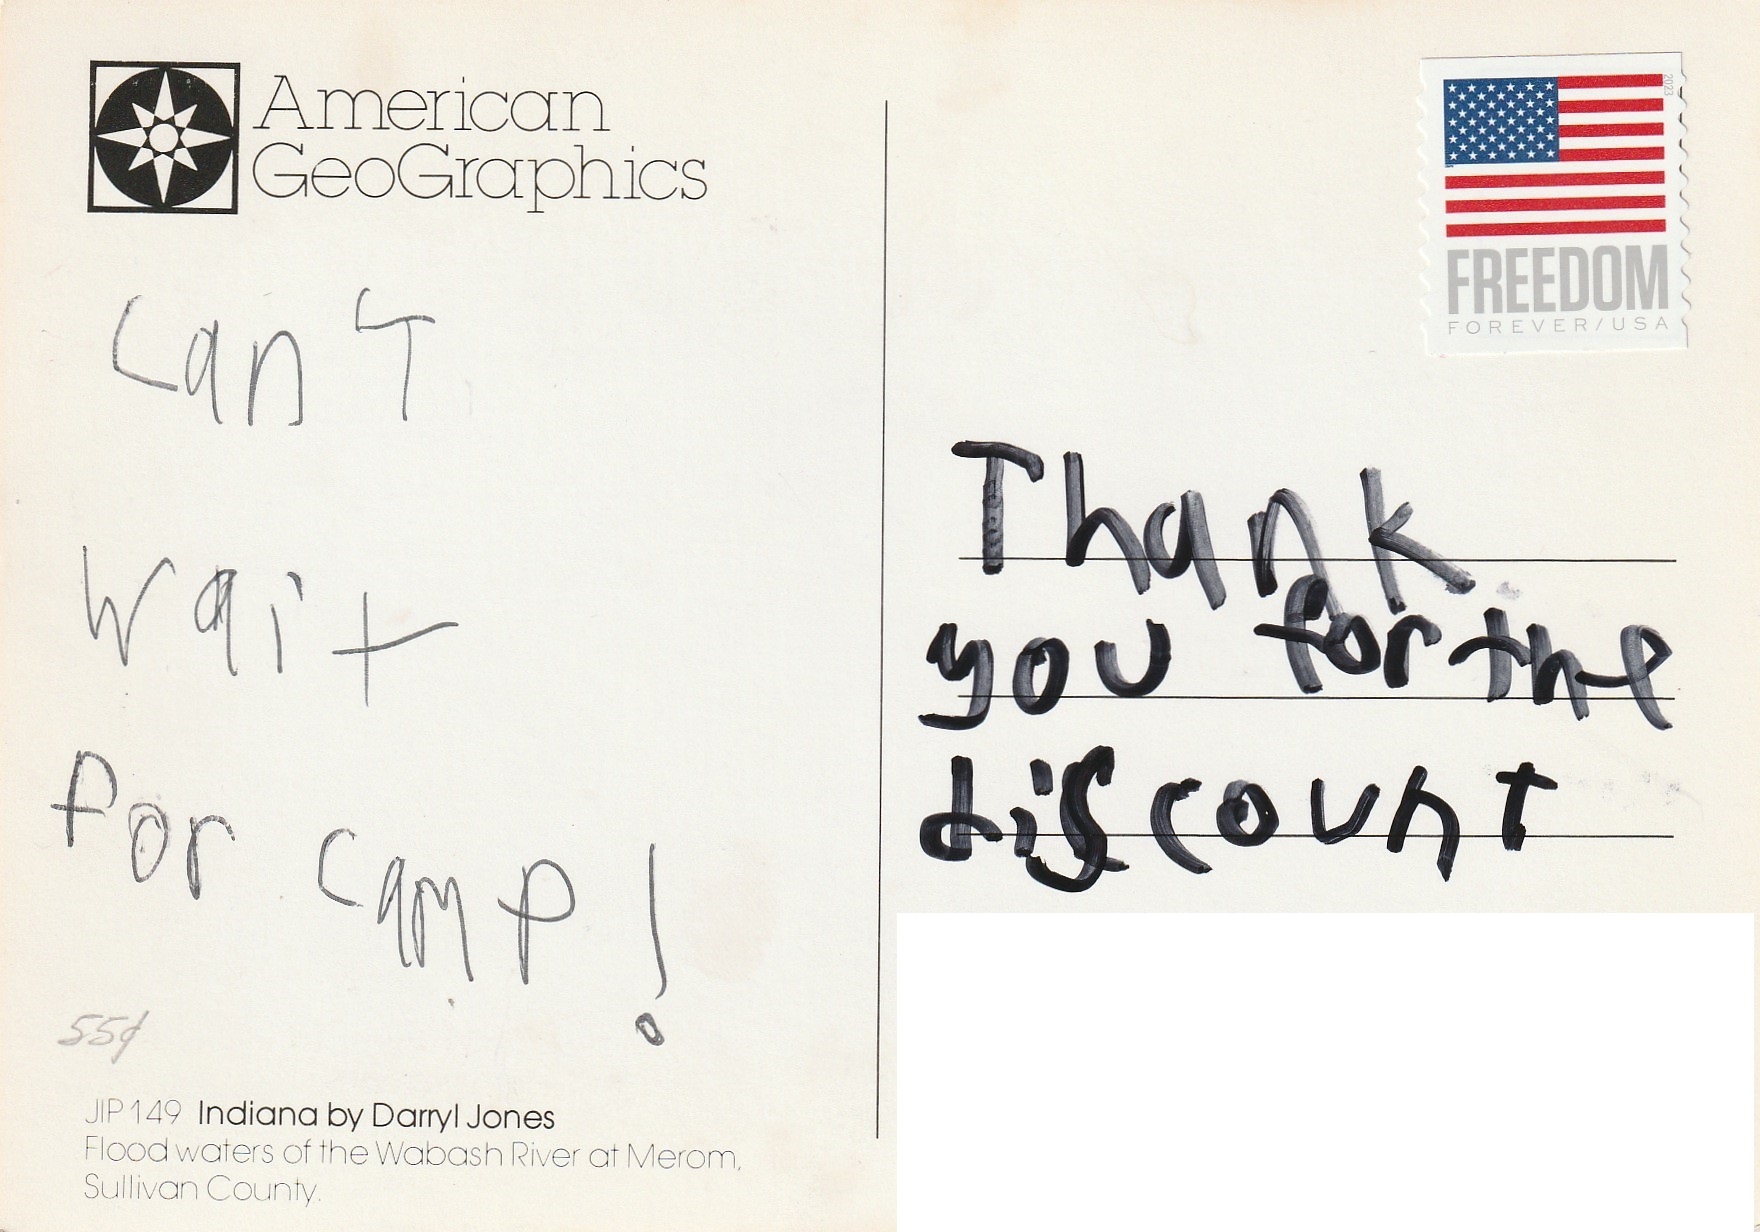 American
GeoGraphics
can't
wait
for camp!
55¢
JIP 149 Indiana by Darryl Jones
Flood waters of the Wabash River at Merom,
Sullivan County.
2023
FREEDOM
FOREVER/USA
Thank
you for the
discount